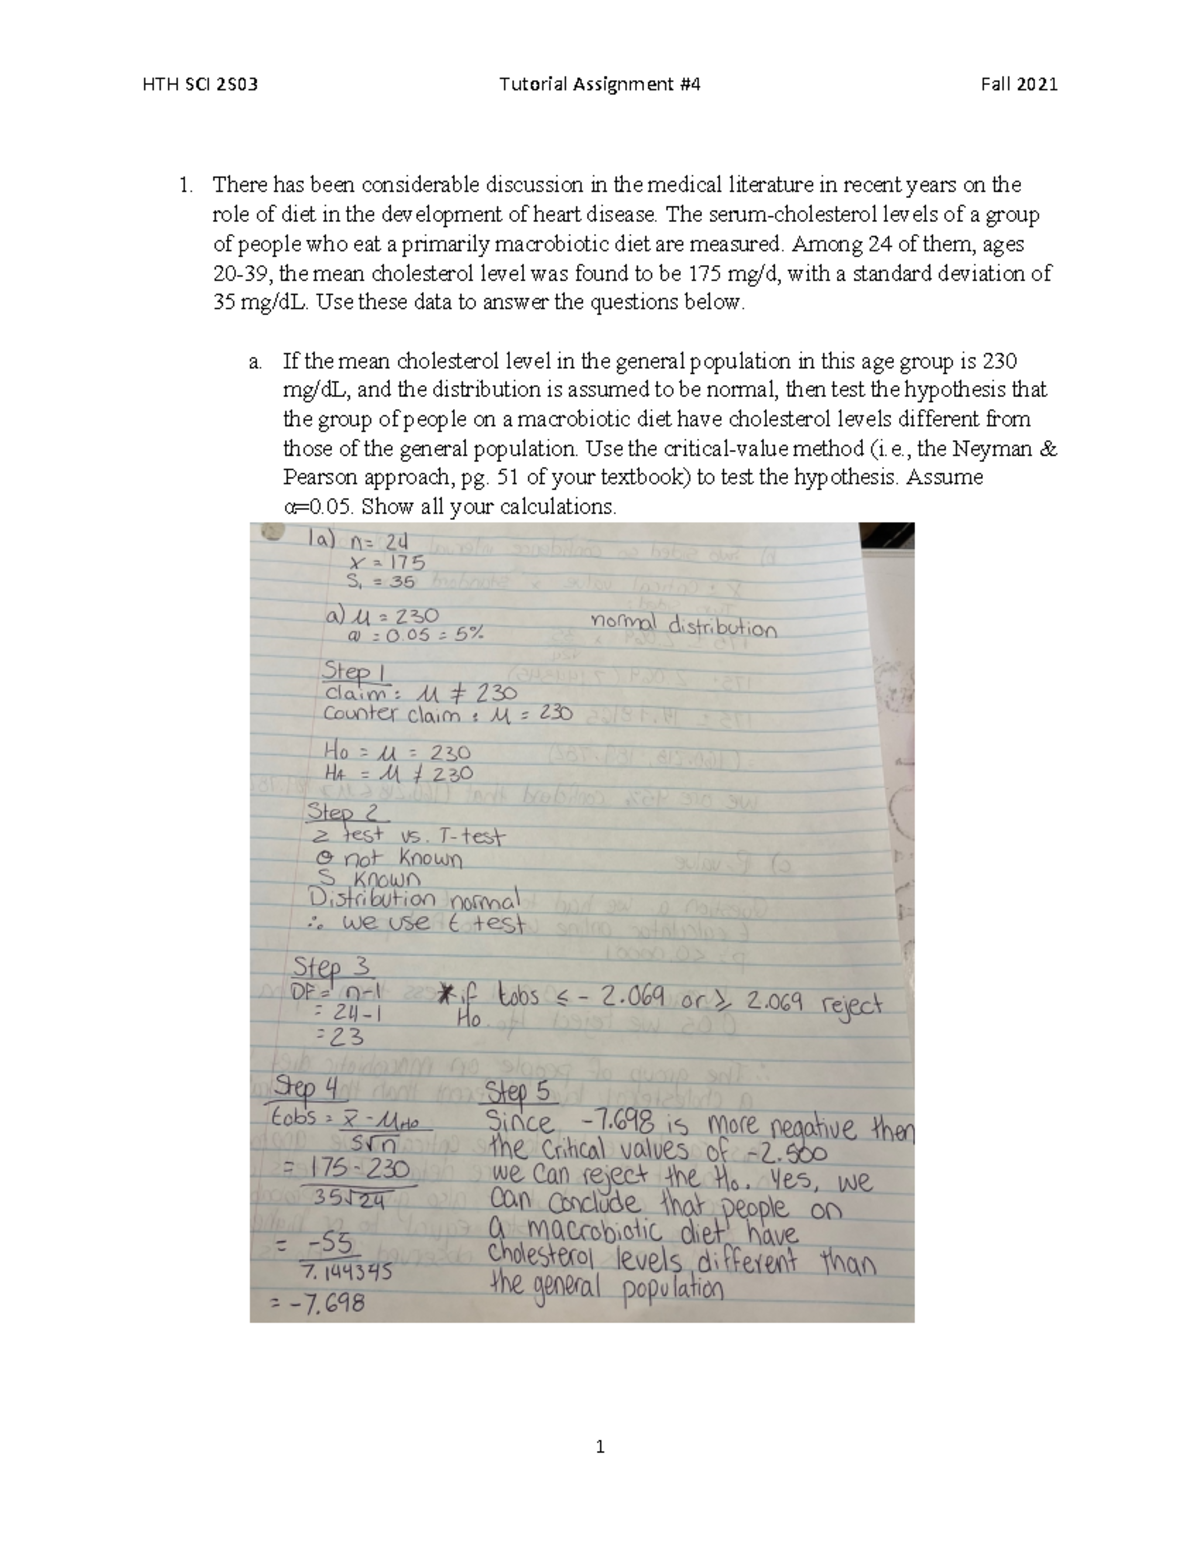 HTH SCI 2S03 Tutorial Assignment #4 Fall 2021
1. There has been considerable discussion in the medical literature in recent years on the
role of diet in the development of heart disease. The serum-cholesterol levels of a group
of people who eat a primarily macrobiotic diet are measured. Among 24 of them, ages
20-39, the mean cholesterol level was found to be 175 mg/d, with a standard deviation of
35 mg/dL. Use these data to answer the questions below.
a. If the mean cholesterol level in the general population in this age group is 230
mg/dL, and the distribution is assumed to be normal, then test the hypothesis that
the group of people on a macrobiotic diet have cholesterol levels different from
those of the general population. Use the critical-value method (i.e., the Neyman &
Pearson approach, pg. 51 of your textbook) to test the hypothesis. Assume
α=0.05. Show all your calculations.
1a) n= 24
x = 175
S, = 35
a) μ = 230
α = 0.05 = 5%
normal distribution
Step 1
claim: μ ≠ 230
counter claim: μ = 230
Ho = μ = 230
HA = μ ≠ 230
Step 2
z test vs. T-test
σ not known
S known
Distribution normal
∴ we use t test
Step 3
DF = n-1
= 24-1
= 23
*if tobs ≤ - 2.069 or ≥ 2.069 reject
Ho
Step 4
tobs = x̄ - μHo
S√n
= 175-230
35√24
= -55
7.144345
= -7.698
Step 5
Since -7.698 is more negative then
the critical values of -2.500
we can reject the Ho. Yes, we
can conclude that people on
a macrobiotic diet have
cholesterol levels different than
the general population
1